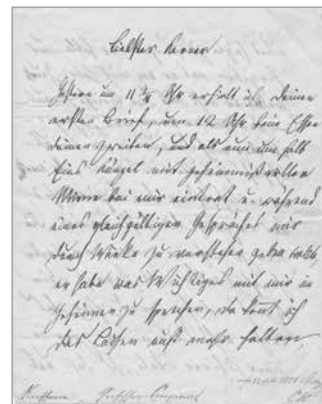 Liebster Kerner
Gestern um 11 3/4 Uhr erhielt ich Deinen
ersten Brief, um 12 Uhr beim Essen
Deinen zweiten, und als nun um halb
Eins Köngel mit geheimnißvoller
Miene bei mir eintrat u. während
eines gleichgültigen Gespräches mir
durch Winke zu verstehen geben wollte,
er habe was Wichtiges mit mir im
Geheimen zu sprechen, da konnt ich
das Lachen nicht mehr halten